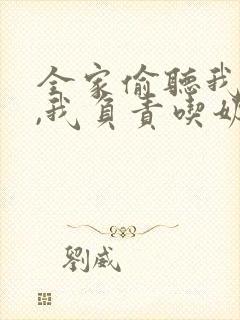 全家偷聽我
,我負責喫奶
劉威